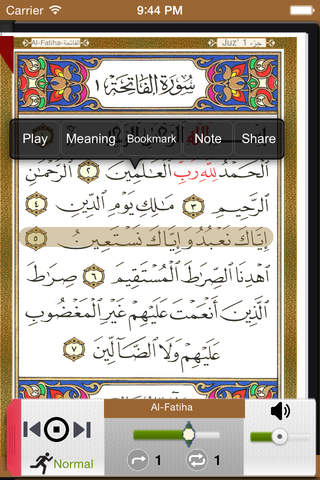 Carrier 9:44 PM
Al-Fatiha-الفاتحة Juz' 1 جزء
سُورَةُ الفَاتِحَةِ ١
الله
Play Meaning Bookmark Note Share
الْحَمْدُ لِلَّهِ رَبِّ الْعَالَمِينَ ٢ الرَّحْمَٰنِ
الرَّحِيمِ ٣ مَالِكِ يَوْمِ الدِّينِ ٤
إِيَّاكَ نَعْبُدُ وَإِيَّاكَ نَسْتَعِينُ ٥
اهْدِنَا الصِّرَاطَ الْمُسْتَقِيمَ ٦ صِرَاطَ
الَّذِينَ أَنْعَمْتَ عَلَيْهِمْ غَيْرِ الْمَغْضُوبِ
عَلَيْهِمْ وَلَا الضَّالِّينَ ٧
Al-Fatiha
Normal 1 1